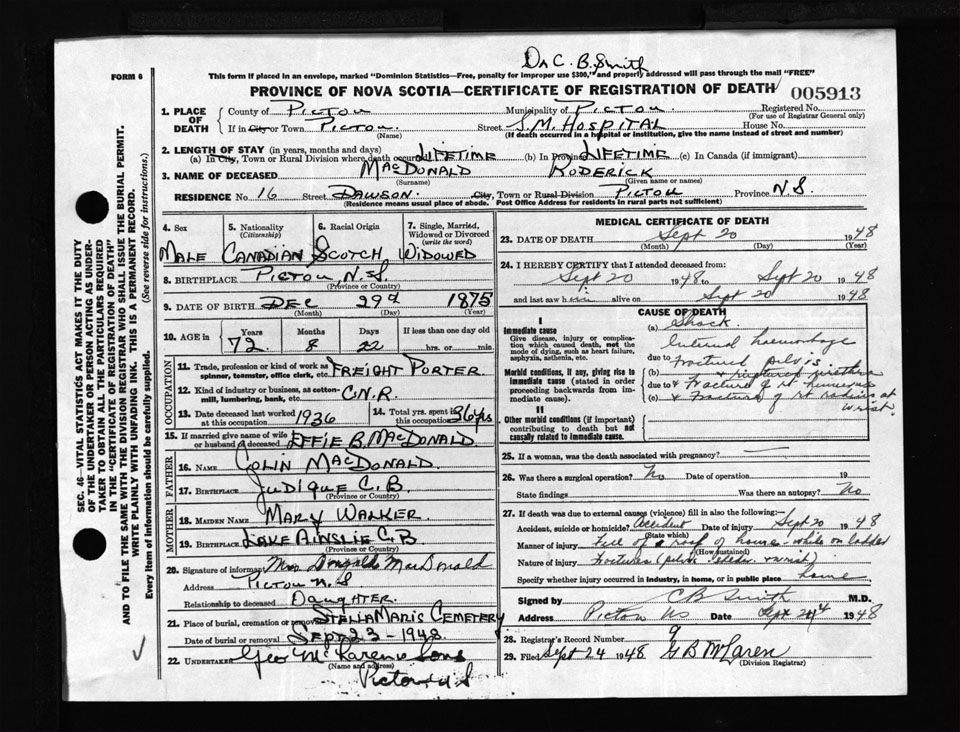 Dr C. B. Smith
FORM 6
This form if placed in an envelope, marked "Dominion Statistics—Free, penalty for improper use $300," and properly addressed will pass through the mail "FREE"
PROVINCE OF NOVA SCOTIA—CERTIFICATE OF REGISTRATION OF DEATH
005913
1. PLACE OF DEATH
County of Pictou Municipality of Pictou. Registered No.
(For use of Registrar General only)
If in City or Town Pictou. Street S.M. Hospital House No.
(Name) (If death occurred in a hospital or institution, give the name instead of street and number)
2. LENGTH OF STAY (in years, months and days)
(a) In City, Town or Rural Division where death occurred Lifetime (b) In Province Lifetime (c) In Canada (if immigrant)
3. NAME OF DECEASED MacDonald Roderick
(Surname) (Given name or names)
RESIDENCE No. 16 Street Dawson. City, Town or Rural Division Pictou Province N.S.
(Residence means usual place of abode. Post Office Address for residents in rural parts not sufficient)
4. Sex 5. Nationality (Citizenship) 6. Racial Origin 7. Single, Married, Widowed or Divorced (write the word)
Male Canadian Scotch Widowed
8. BIRTHPLACE Pictou N.S.
(Province or Country)
9. DATE OF BIRTH Dec 29th 1875
(Month) (Day) (Year)
10. AGE in Years Months Days If less than one day old
72 8 22 hrs. or min.
OCCUPATION
11. Trade, profession or kind of work as spinner, teamster, office clerk, etc. Freight Porter
12. Kind of industry or business, as cotton-mill, lumbering, bank, etc. C.N.R.
13. Date deceased last worked at this occupation 1936
14. Total yrs. spent in this occupation 36 yrs
15. If married give name of wife or husband of deceased Effie B. MacDonald
FATHER
16. Name Colin MacDonald.
17. Birthplace Judique C.B.
(Province or Country)
MOTHER
18. Maiden Name Mary Walker.
19. Birthplace Lake Ainslie C.B
(Province or Country)
20. Signature of informant Mrs Dougald MacDonald
Address Pictou N.S
Relationship to deceased Daughter.
21. Place of burial, cremation or removal Stella Maris Cemetery
Date of burial or removal Sept 23 - 1948.
22. Undertaker Geo McLaren & Sons
(Name and address)
Pictou N.S
MEDICAL CERTIFICATE OF DEATH
23. DATE OF DEATH Sept 20 1948
(Month) (Day) (Year)
24. I HEREBY CERTIFY that I attended deceased from:
Sept 20 1948 to Sept 20 1948
and last saw him alive on Sept 20 1948
CAUSE OF DEATH
I
Immediate cause
Give disease, injury or complication which caused death, not the mode of dying, such as heart failure, asphyxia, asthenia, etc.
(a) Shock.
Internal haemorrhage
due to Fractured pelvis
Morbid conditions, if any, giving rise to immediate cause (stated in order proceeding backwards from immediate cause).
(b) & ruptured urethra
due to & Fracture of rt humerus
(c) & Fracture of rt radius at wrist
II
Other morbid conditions (if important) contributing to death but not causally related to immediate cause.
25. If a woman, was the death associated with pregnancy? —
26. Was there a surgical operation? No Date of operation 19
State findings Was there an autopsy? No
27. If death was due to external causes (violence) fill in also the following:—
Accident, suicide or homicide? Accident Date of injury Sept 20 1948
(State which)
Manner of injury Fell of a roof of house - while on ladder
(How sustained)
Nature of injury Fractures (pelvis & wrist)
Specify whether injury occurred in industry, in home, or in public place home
Signed by C B Smith M.D.
Address Pictou NS Date Sept 24 1948
28. Registrar's Record Number 9
29. Filed Sept 24 1948 G B McLaren
(Division Registrar)
SEC. 46—VITAL STATISTICS ACT MAKES IT THE DUTY
OF THE UNDERTAKER OR PERSON ACTING AS UNDER-
TAKER TO OBTAIN ALL THE PARTICULARS REQUIRED
IN THE "CERTIFICATE OF REGISTRATION OF DEATH"
AND TO FILE THE SAME WITH THE DIVISION REGISTRAR WHO SHALL ISSUE THE BURIAL PERMIT.
WRITE PLAINLY WITH UNFADING INK. THIS IS A PERMANENT RECORD.
Every item of information should be carefully supplied. (See reverse side for instructions.)